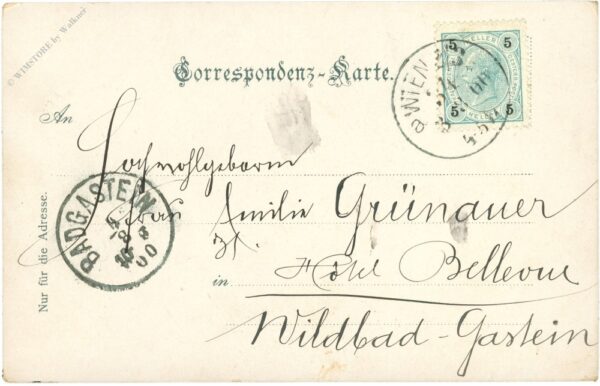 © WIMSTORE by Walkner
Correspondenz-Karte.
5 5
HELLER
5 5
HELLER
WIEN
An
Hochwohlgeborne
Frau Emilie Grünauer
BADGASTEIN
8
00
in Hôtel Bellevue
Wildbad-Gastein
Nur für die Adresse.